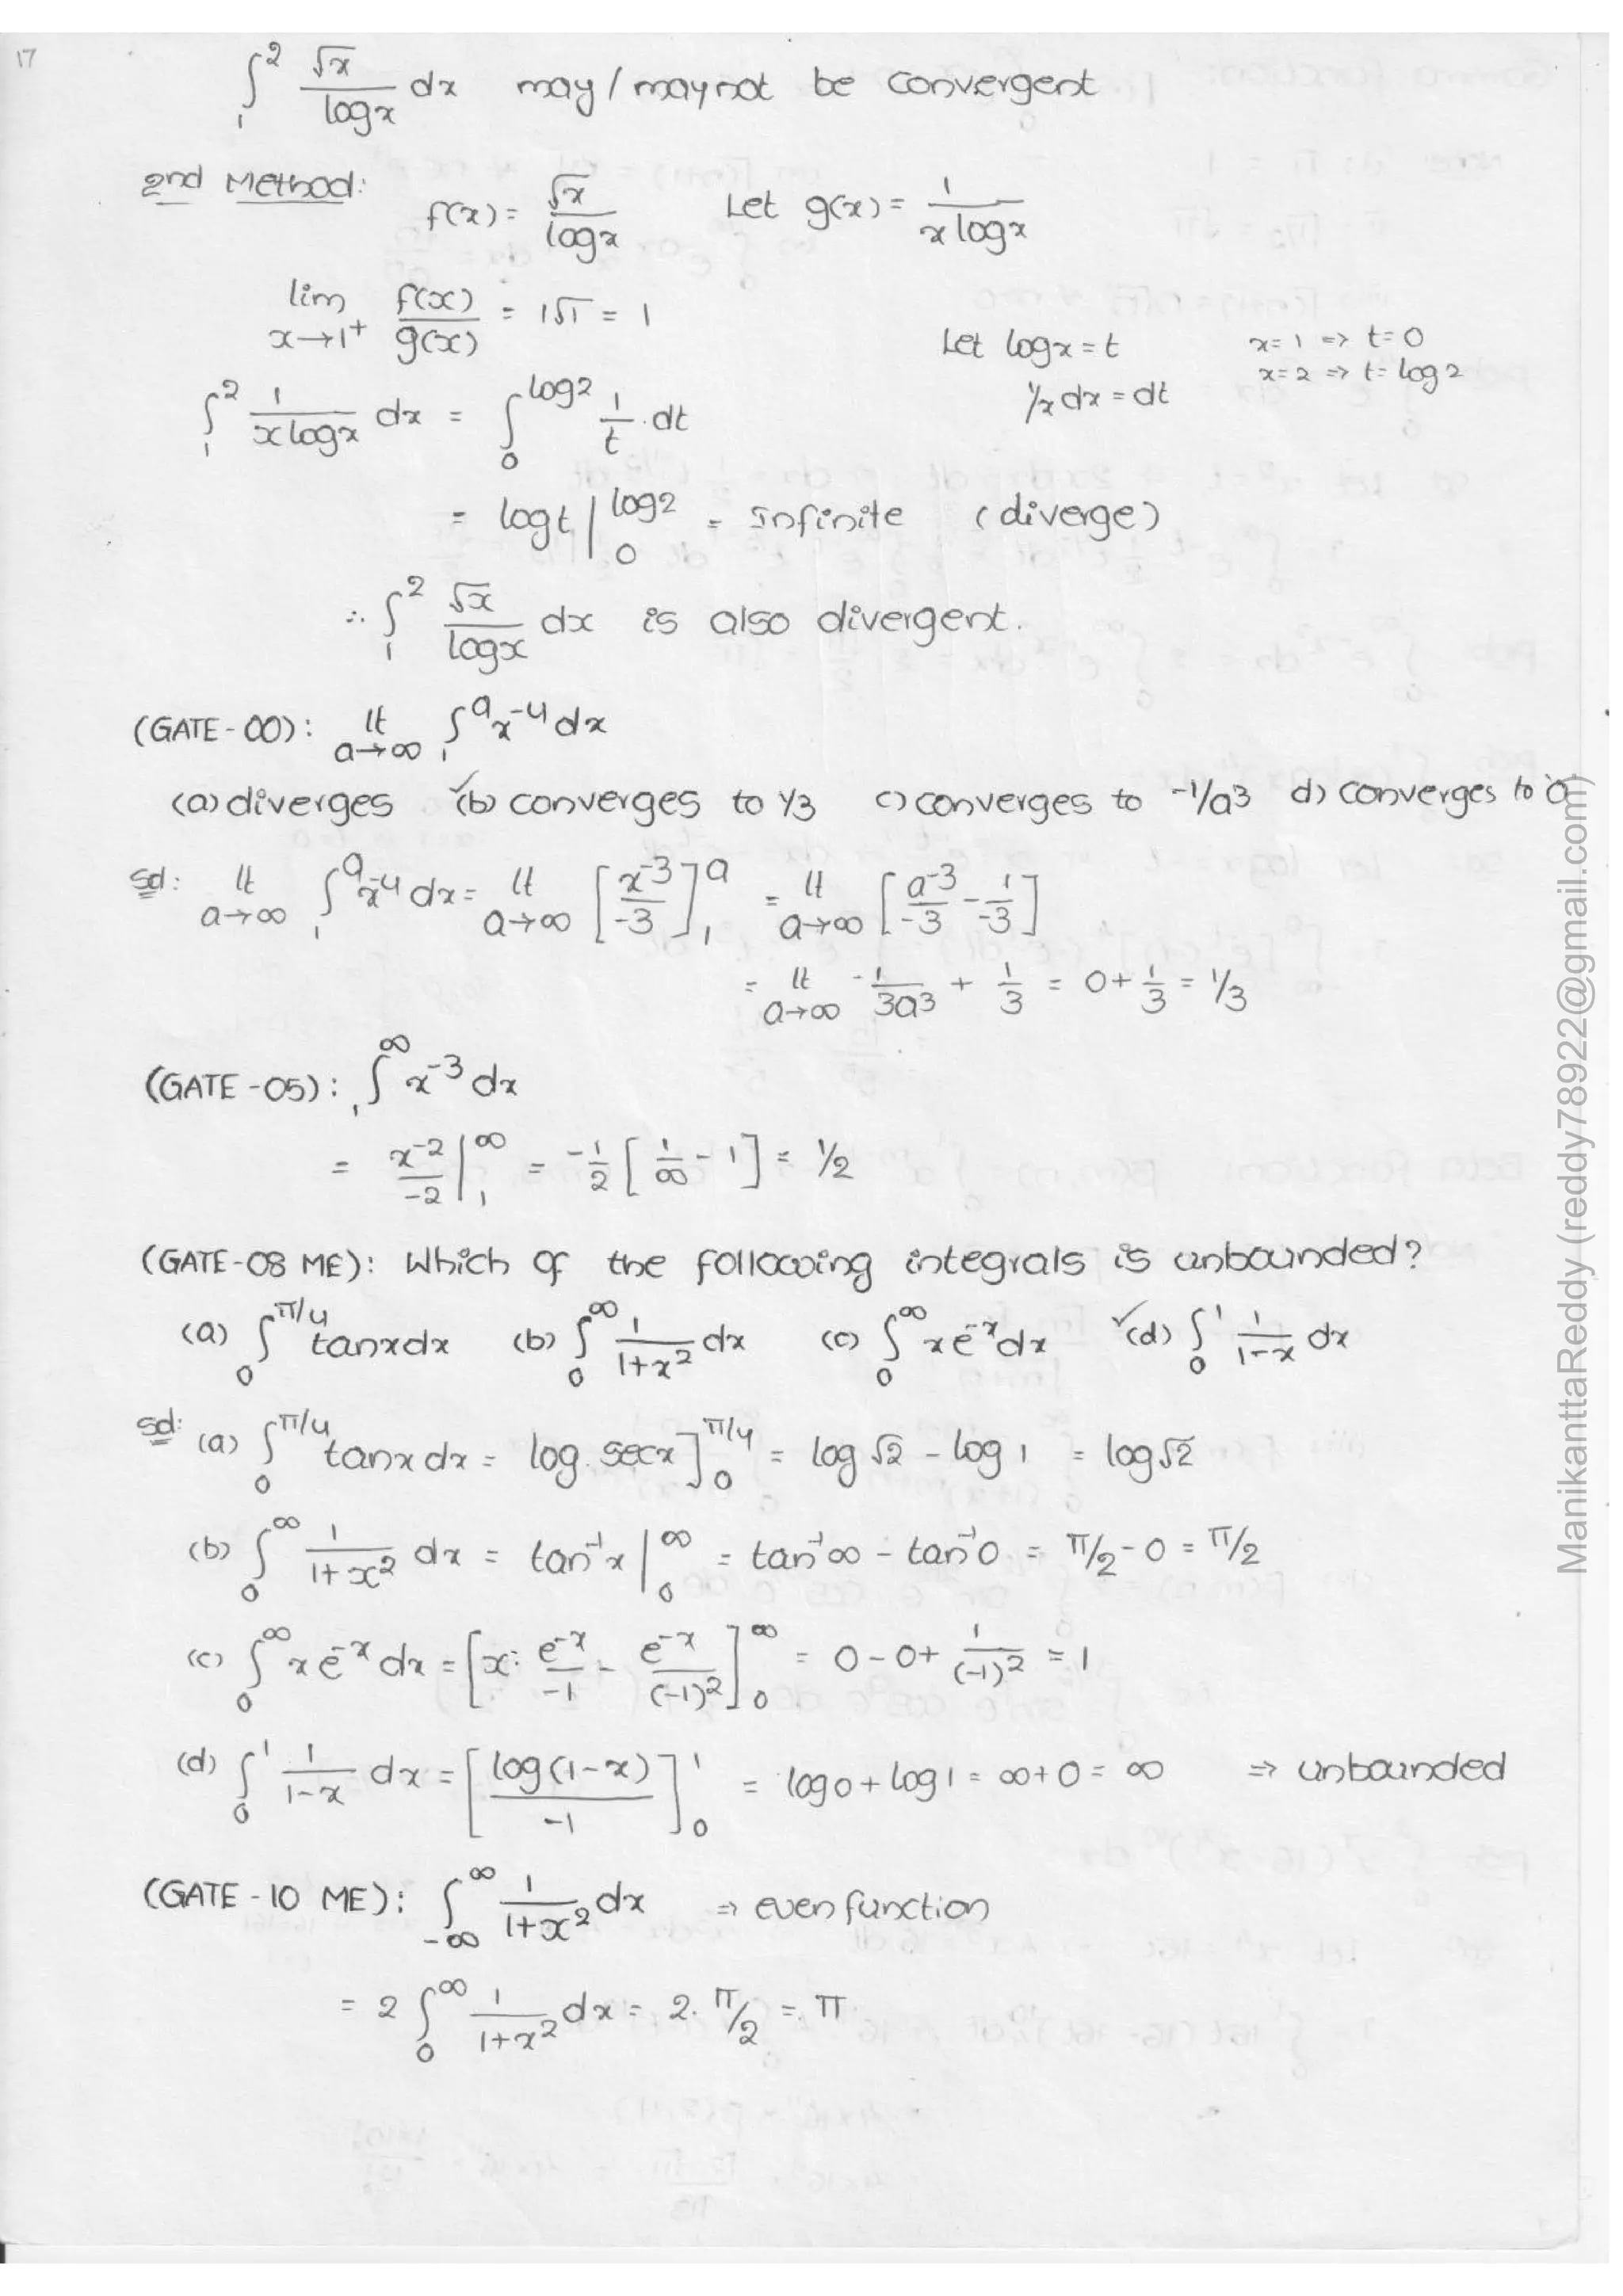 17
∫₁² √x / logx dx may / maynot be convergent
2nd Method: f(x) = √x / logx Let g(x) = 1 / x logx
lim x→1⁺ f(x)/g(x) = 1√1 = 1
Let logx = t x=1 => t=0
1/x dx = dt x=2 => t=log2
∫₁² 1 / xlogx dx = ∫₀^log2 1/t · dt
= logt |₀^log2 = Infinite (diverge)
∴ ∫₁² √x / logx dx is also divergent.
(GATE-00): lt a→∞ ∫₁ᵃ x⁻⁴ dx
(a) diverges ✓(b) converges to 1/3 c) converges to -1/a3 d) converges to 0
Sol: lt a→∞ ∫₁ᵃ x⁻⁴ dx = lt a→∞ [x⁻³/-3]₁ᵃ = lt a→∞ [a⁻³/-3 - 1/-3]
= lt a→∞ -1/3a³ + 1/3 = 0 + 1/3 = 1/3
(GATE-05): ∫₁^∞ x⁻³ dx
= x⁻²/-2 |₁^∞ = -1/2 [1/∞ - 1] = 1/2
(GATE-08 ME): Which of the following integrals is unbounded?
(a) ∫₀^π/4 tanxdx (b) ∫₀^∞ 1/1+x² dx (c) ∫₀^∞ xe⁻ˣdx ✓(d) ∫₀¹ 1/1-x dx
Sol: (a) ∫₀^π/4 tanx dx = log.secx]₀^π/4 = log√2 - log1 = log√2
(b) ∫₀^∞ 1/1+x² dx = tan⁻¹x |₀^∞ = tan⁻¹∞ - tan⁻¹0 = π/2 - 0 = π/2
(c) ∫₀^∞ xe⁻ˣ dx = [x· e⁻ˣ/-1 - e⁻ˣ/(-1)²]₀^∞ = 0 - 0 + 1/(-1)² = 1
(d) ∫₀¹ 1/1-x dx = [log(1-x)/-1]₀¹ = log0 + log1 = ∞+0 = ∞ => unbounded
(GATE-10 ME): ∫₋∞^∞ 1/1+x² dx => even function
= 2 ∫₀^∞ 1/1+x² dx = 2. π/2 = π
ManikanttaReddy (reddy78922@gmail.com)